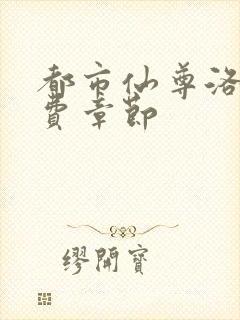 都市仙尊洛
費章節
繆開寶